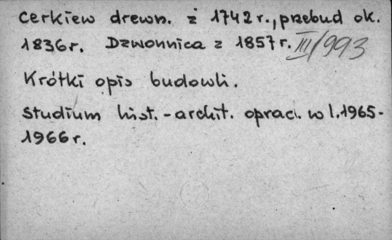 Cerkiew drewn. z 1742 r., przebud ok.
1836 r. Dzwonnica z 1857 r. III/993
Krótki opis budowli.
Studium hist.-archit. oprac. w l. 1965-
1966 r.